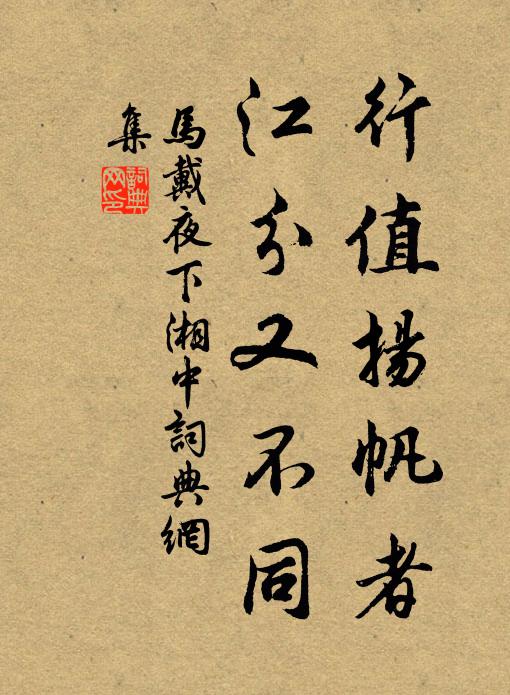 行值揚帆者
江分又不同
馬戴夜下湘中詞典網
集
詞典
网印